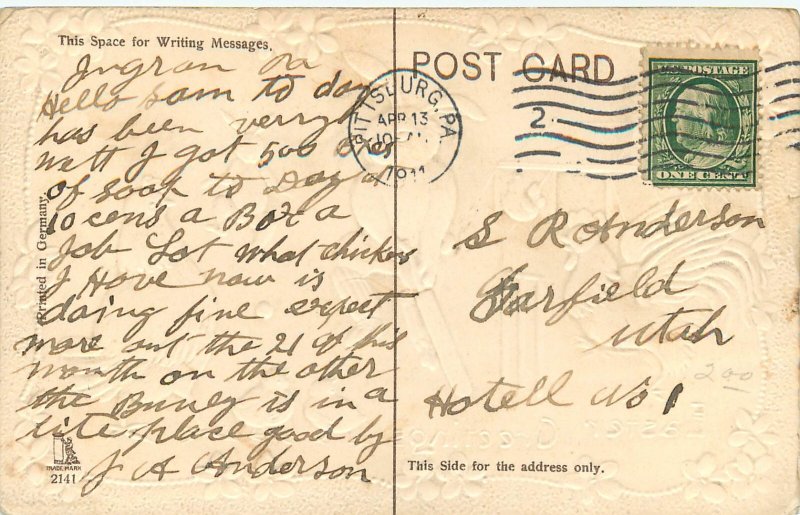 This Space for Writing Messages.
Ingram Pa
Hello Sam to day
has been verry
wett I got 500 Oxes
of Soap to Day at
10 cens a Box a
Job Lot what chicken
I Have now is
doing fine expect
more out the 21 of this
month on the other
the Buney is in a
tite place good by
J A Anderson
Printed in Germany
TRADE MARK
2141
POST CARD
PITTSBURG, PA.
APR 13
1911
2
U.S. POSTAGE
ONE CENT
S R Anderson
Farfield
Utah
Hotell No 1
200
This Side for the address only.